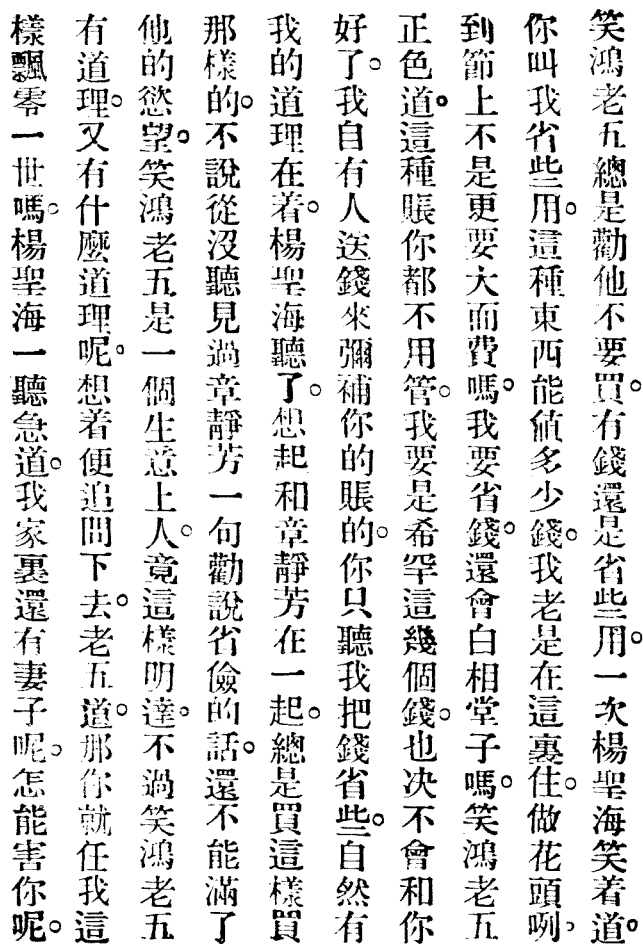 笑鴻老五總是勸他不要買。有錢還是省些用。一次楊聖海笑着道。
你叫我省些用。這種東西能値多少錢。我老是在這裏住。做花頭咧。
到節上不是更要大而費嗎。我要省錢。還會白相堂子嗎。笑鴻老五
正色道。這種賬你都不用管。我要是希罕這幾個錢。也決不會和你
好了。我自有人送錢來彌補你的賬的。你只聽我把錢省些。自然有
我的道理在着。楊聖海聽了。想起和章靜芳在一起。總是買這樣買
那樣的。不說從沒聽見過章靜芳一句勸說省儉的話。還不能滿了
他的慾望。笑鴻老五是一個生意上人。竟這樣明達。不過笑鴻老五
有道理。又有什麼道理呢。想着便追問下去。老五道。那你就任我這
樣飄零一世嗎。楊聖海一聽急道。我家裏還有妻子呢。怎能害你呢。